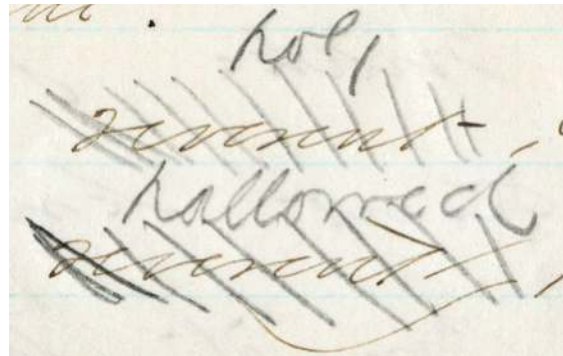 hol,
reverent
hallowed
reverent